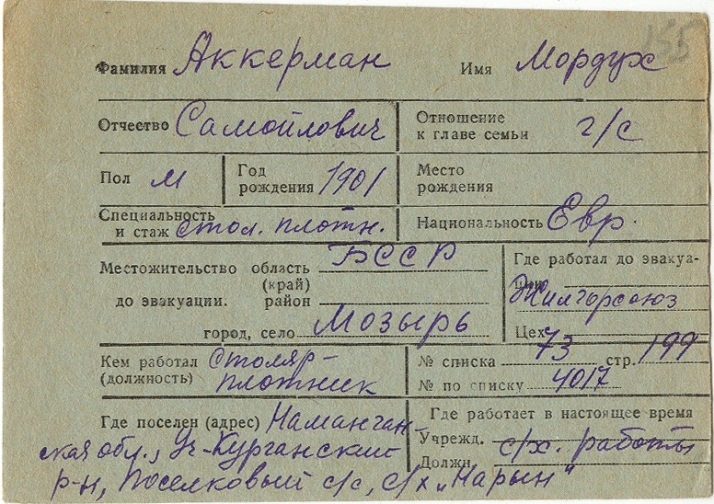 155
Фамилия Аккерман Имя Мордух
Отчество Самойлович Отношение к главе семьи г/с
Пол М Год рождения 1901 Место рождения
Специальность и стаж стол. плотн. Национальность Евр.
Местожительство область БССР
(край)
до эвакуации. район
город, село Мозырь
Где работал до эвакуа-
ции Жилгорсоюз
Цех
Кем работал столяр-
(должность) плотник
№ списка 73 стр. 199
№ по списку 4017
Где поселен (адрес) Наманган-
ская обл., Уч-Курганский
р-н, Поселковый с/с, с/х „Нарын"
Где работает в настоящее время
Учрежд. с/х. работы
Должн.